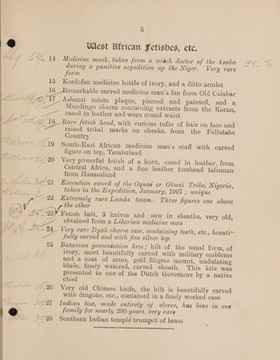 5
West African Fetishes, etc.
14 Medicine mask, taken from a witch doctor of the Asaba
during a punitive expedition up the Niger. Very rare
form
15 Kordofan medicine bottle of ivory, and a ditto armlet
16 Remarkable carved medicine man's fan from Old Calabar
17 Ashanti totem plaque, pierced and painted, and a
Mandingo charm containing extracts from the Koran,
cased in leather and worn round waist
18 Rare fetish head, with curious tufts of hair on face and
raised tribal marks on cheeks, from the Fellatahs
Country
19 South-East African medicine man's staff with carved
figure on top,
20 Very powerful fetish of a horn, cased in leather, from
Central Africa, and a fine leather forehead talisman
from Haussaland
21 Execution sword of the Ogumi or Okuni Tribe, Nigeria,
taken in the Expedition, January, 1907; unique
22 Extremely rare Lunda totem. Three figures one above
the other
23 Fetish belt, 3 knives and saw in sheaths, very old,
obtained from a Liberian medicine man
24 Very rare Dyak charm case, containing teeth, etc., beauti-
fully carved and with fine silver top
25 Batavian presentation kris; hilt of the usual form, of
ivory, most beautifully carved with military emblems
and a coat of arms, gold filigree mount, undulating
blade, finely watered, carved sheath. This kris was
presented to one of the Dutch Governors by a native
chief
26 Very old Chinese knife, the hilt is beautifully carved
with dragons, etc., contained in a finely worked case
27 Indian box, made entirely of cloves, has been in one
family for nearly 200 years, very rare
28 Southern Indian temple trumpet of brass